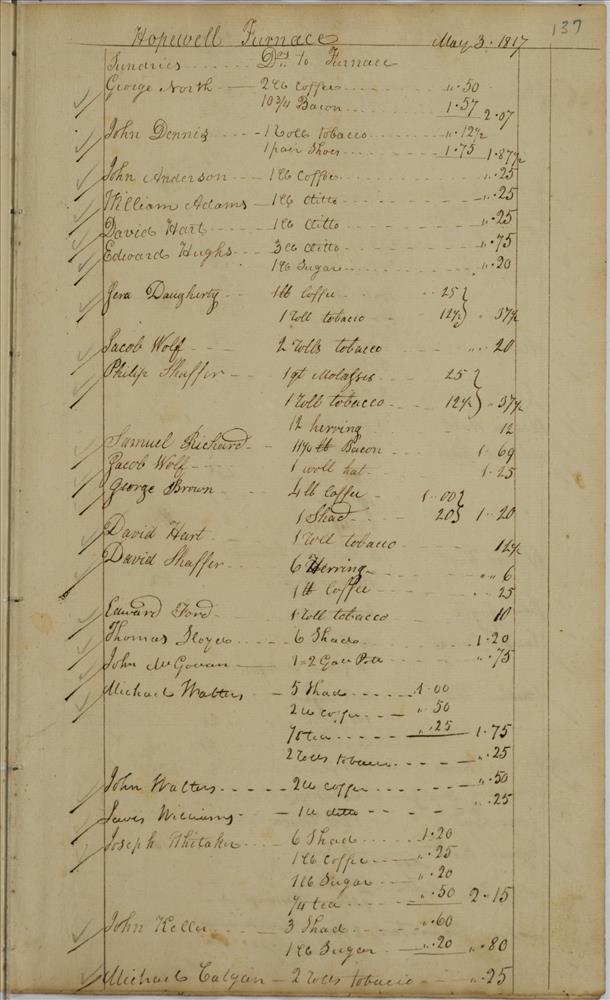 137
Hopewell Furnace May 3. 1817
Sundries Drs to Furnace
George North 2 lb Coffee " . 50
10 3/4 Bacon 1 . 57 2 . 07
John Dennis 1 Roll tobacco " . 12 1/2
1 pair Shoes 1 . 75 1 . 87 1/2
John Anderson 1 lb Coffee " . 25
William Adams 1 lb ditto " . 25
David Hart 1 lb ditto " . 25
Edward Hughs 3 lb ditto " . 75
1 lb Sugar " . 20
Daugherty 1 lb Coffee 25
1 Roll tobacco 12 1/2 " 37 1/2
Jacob Wolf 2 Rolls tobacco " 20
Philip Shaffer 1 qt Molasses 25
1 Roll tobacco 12 1/2 " 37 1/2
12 herring 12
Samuel Richard 11 3/4 lb Bacon 1 . 69
Jacob Wolf 1 woll hat 1 . 25
George Brown 4 lb Coffee 1 . 00
1 Shad 20 1 . 20
David Hart 1 Roll tobacco 12 1/2
David Shaffer 6 Herring " 6
1 lb Coffee 25
Edward Ford 1 Roll tobacco 10
Thomas Lloyd 6 Shad 1 . 20
John McGowan 1 = 2 Gall Pott " . 75
Michael Walters 5 Shad 1 . 00
2 lb coffee " . 50
tea " . 25 1 . 75
2 Rolls tobacco " . 25
John Walters 2 lb coffee " . 50
Lewis Williams 1 lb ditto " . 25
Joseph Whitaker 6 Shad 1 . 20
1 lb Coffee " . 25
1 lb Sugar " . 20
1/4 tea " . 50 2 . 15
John Keller 3 Shad " . 60
1 lb Sugar " . 20 " . 80
Michael 2 Rolls tobacco " . 25